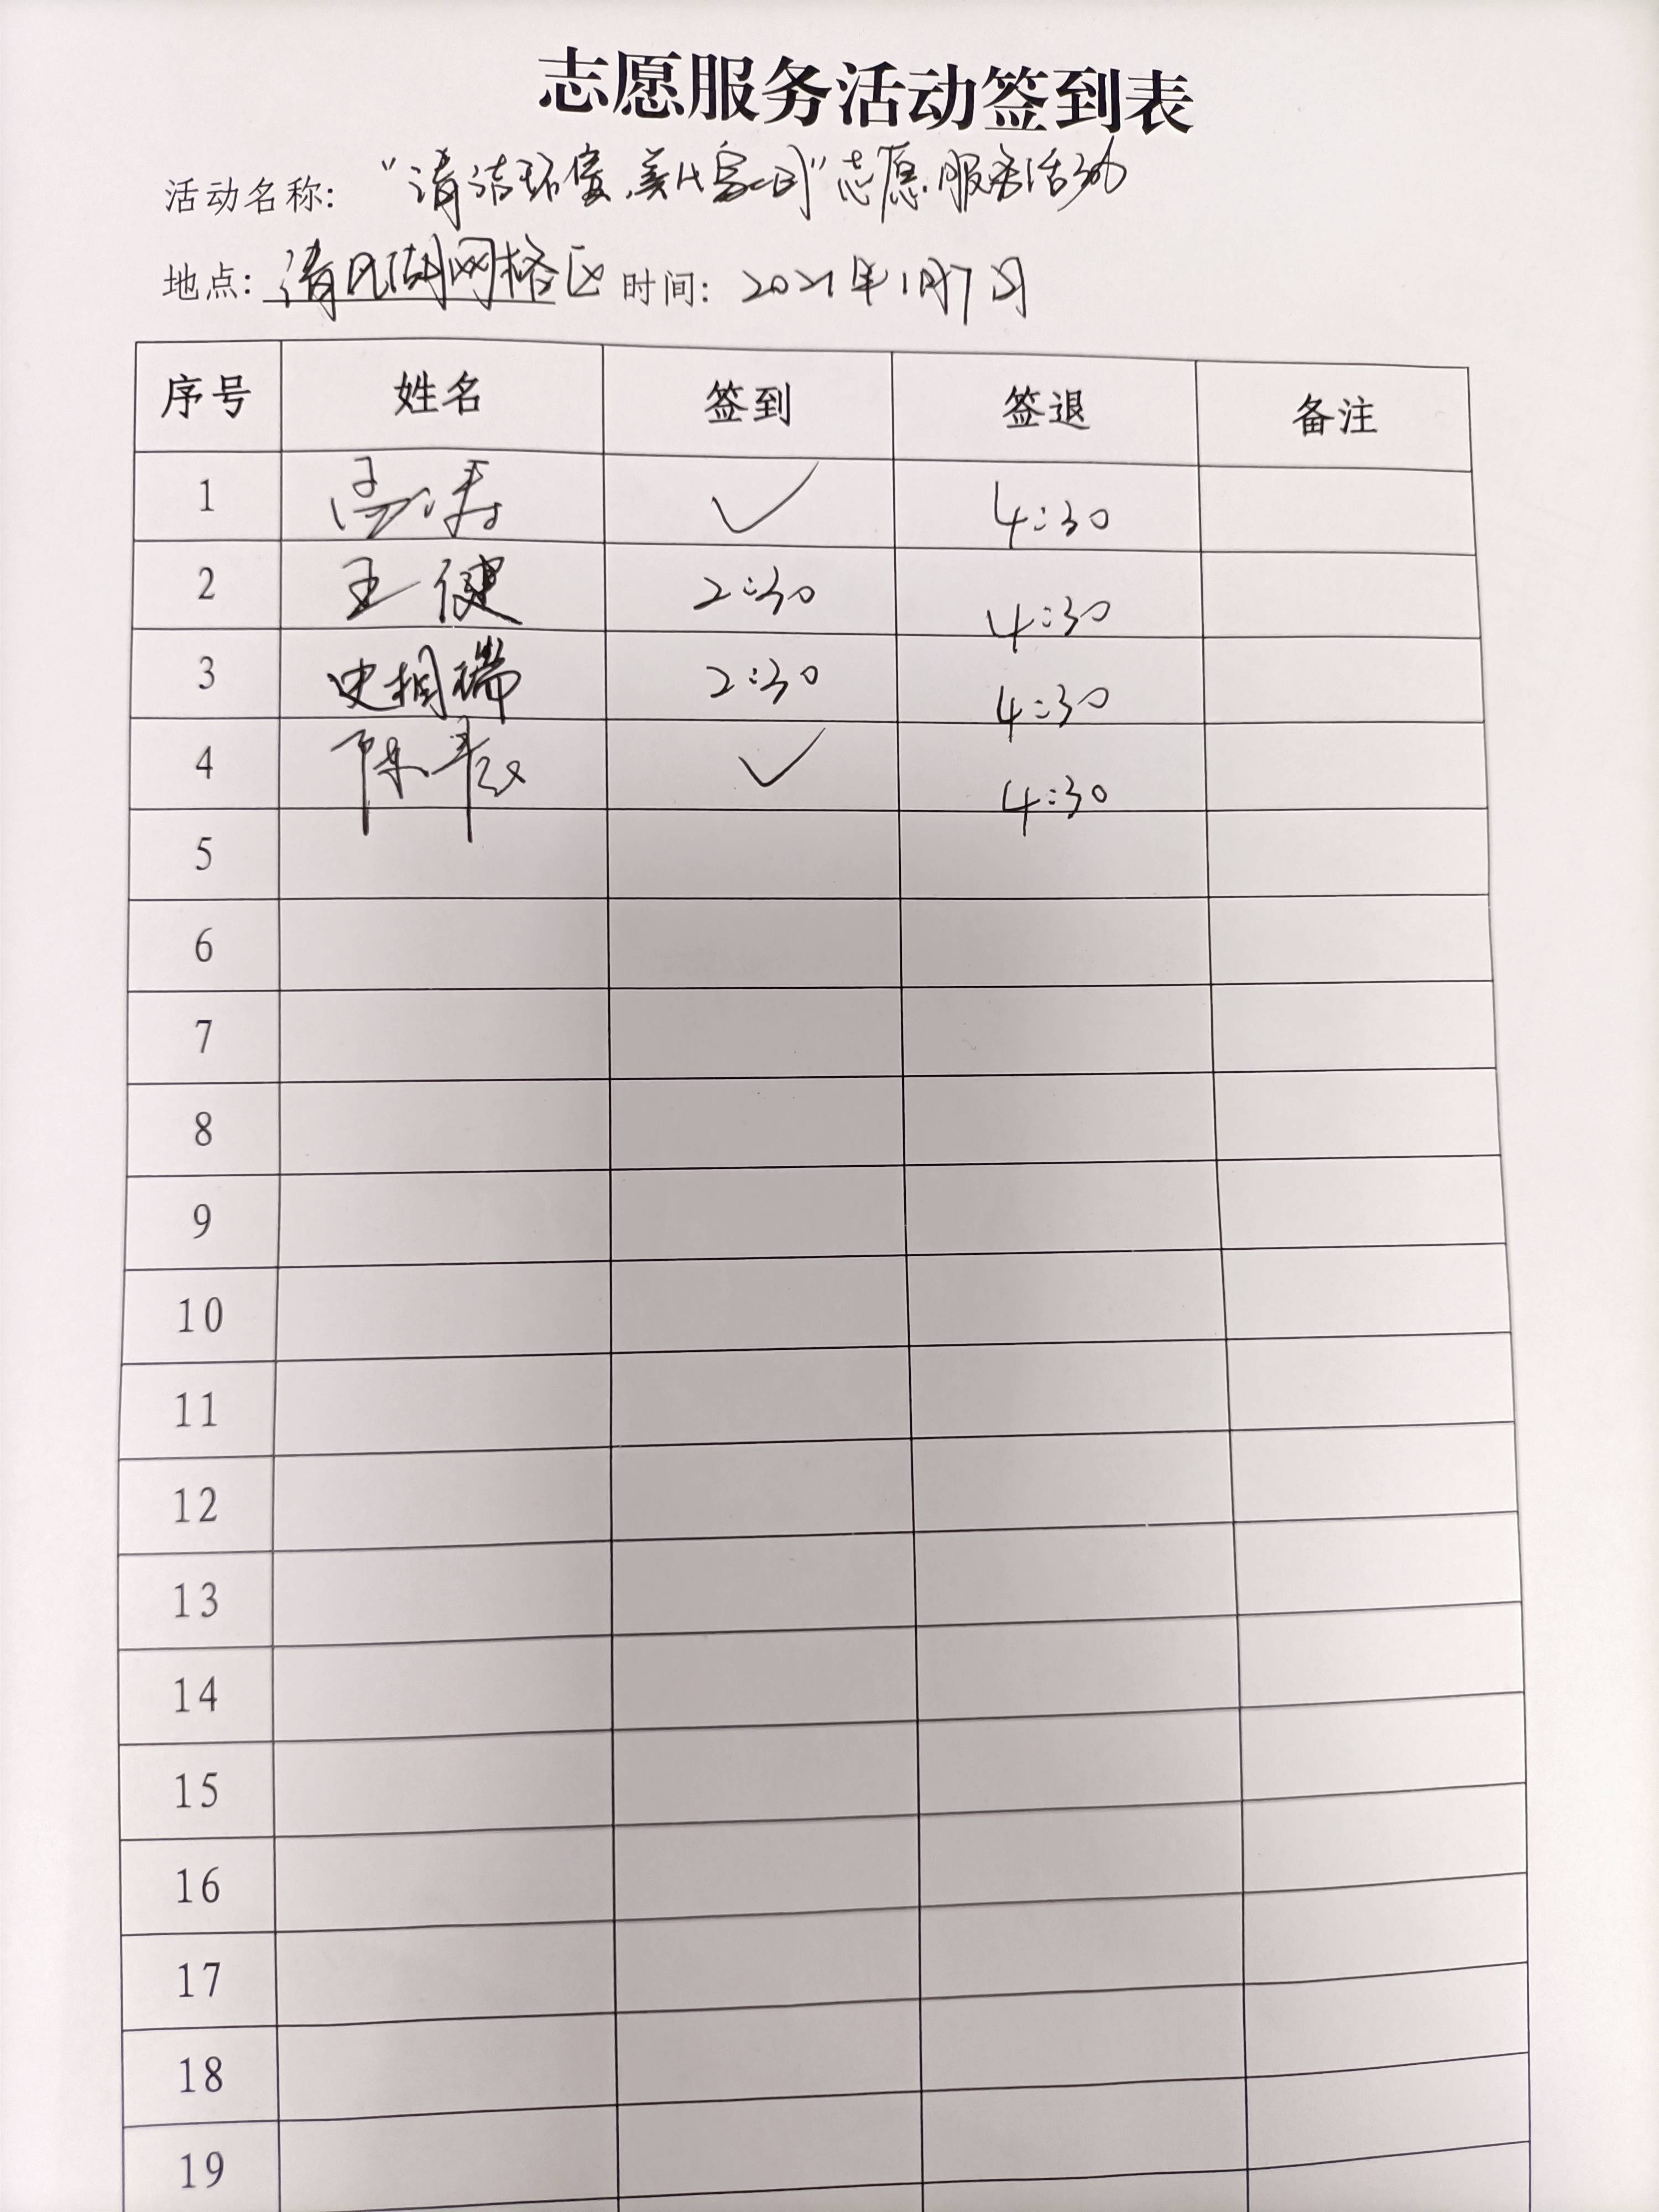 志愿服务活动签到表
活动名称: "清洁环境,美化家园"志愿服务活动
地点: 清月湖网格区 时间: 2021年1月7日
序号 姓名 签到 签退 备注
1 高涛 ✓ 4:30
2 王健 2:30 4:30
3 史桐瑞 2:30 4:30
4 陈 ✓ 4:30
5
6
7
8
9
10
11
12
13
14
15
16
17
18
19